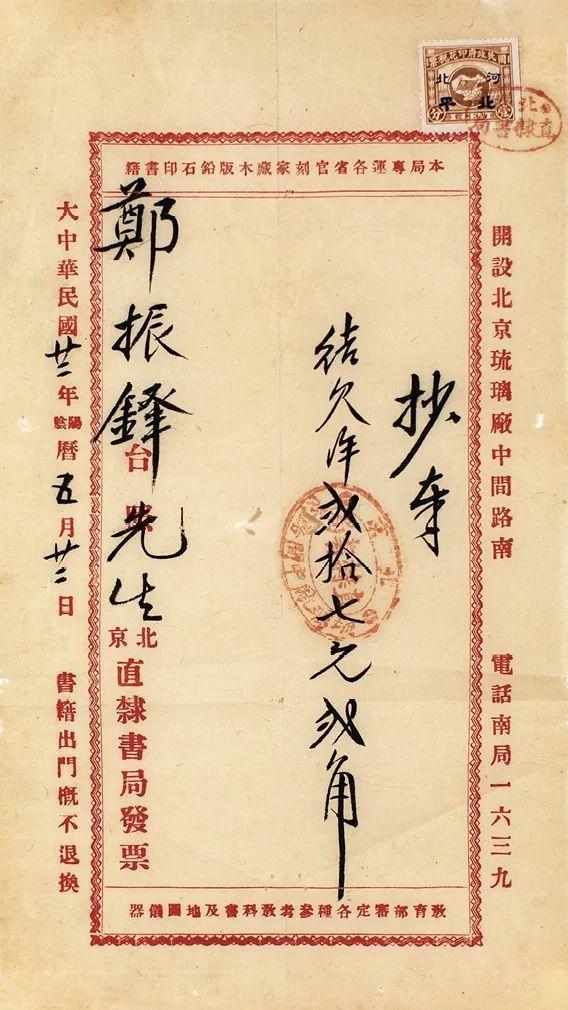 國民政府印花稅票
河北
北平
壹分
本局專運各省官刻家藏木版鉛石印書籍
開設北京琉璃廠中間路南
電話南局一六三九
抄奉
結欠洋貳拾七元貳角
鄭振鐸先生
台
北京
直隸書局發票
大中華民國廿二年陰陽曆五月廿二日
書籍出門概不退換
教育部審定各種參考教科書及地圖儀器